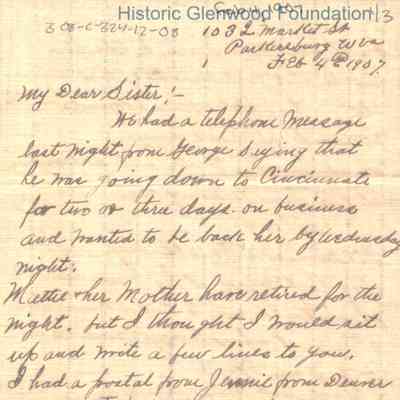 Feb 4, 1907
Historic Glenwood Foundation 3
308-C-324-12-08
1032 Market St
Parkersburg W Va
1 Feb 4th 1907.
My Dear Sister!-
We had a telephone message
last night from George saying that
he was going down to Cincinnati
for two or three days on business
and wanted to be back her by Wednesday
night.
Mattie & her Mother have retired for the
night. but I thought I would sit
up and write a few lines to you.
I had a postal from Jennie from Denver